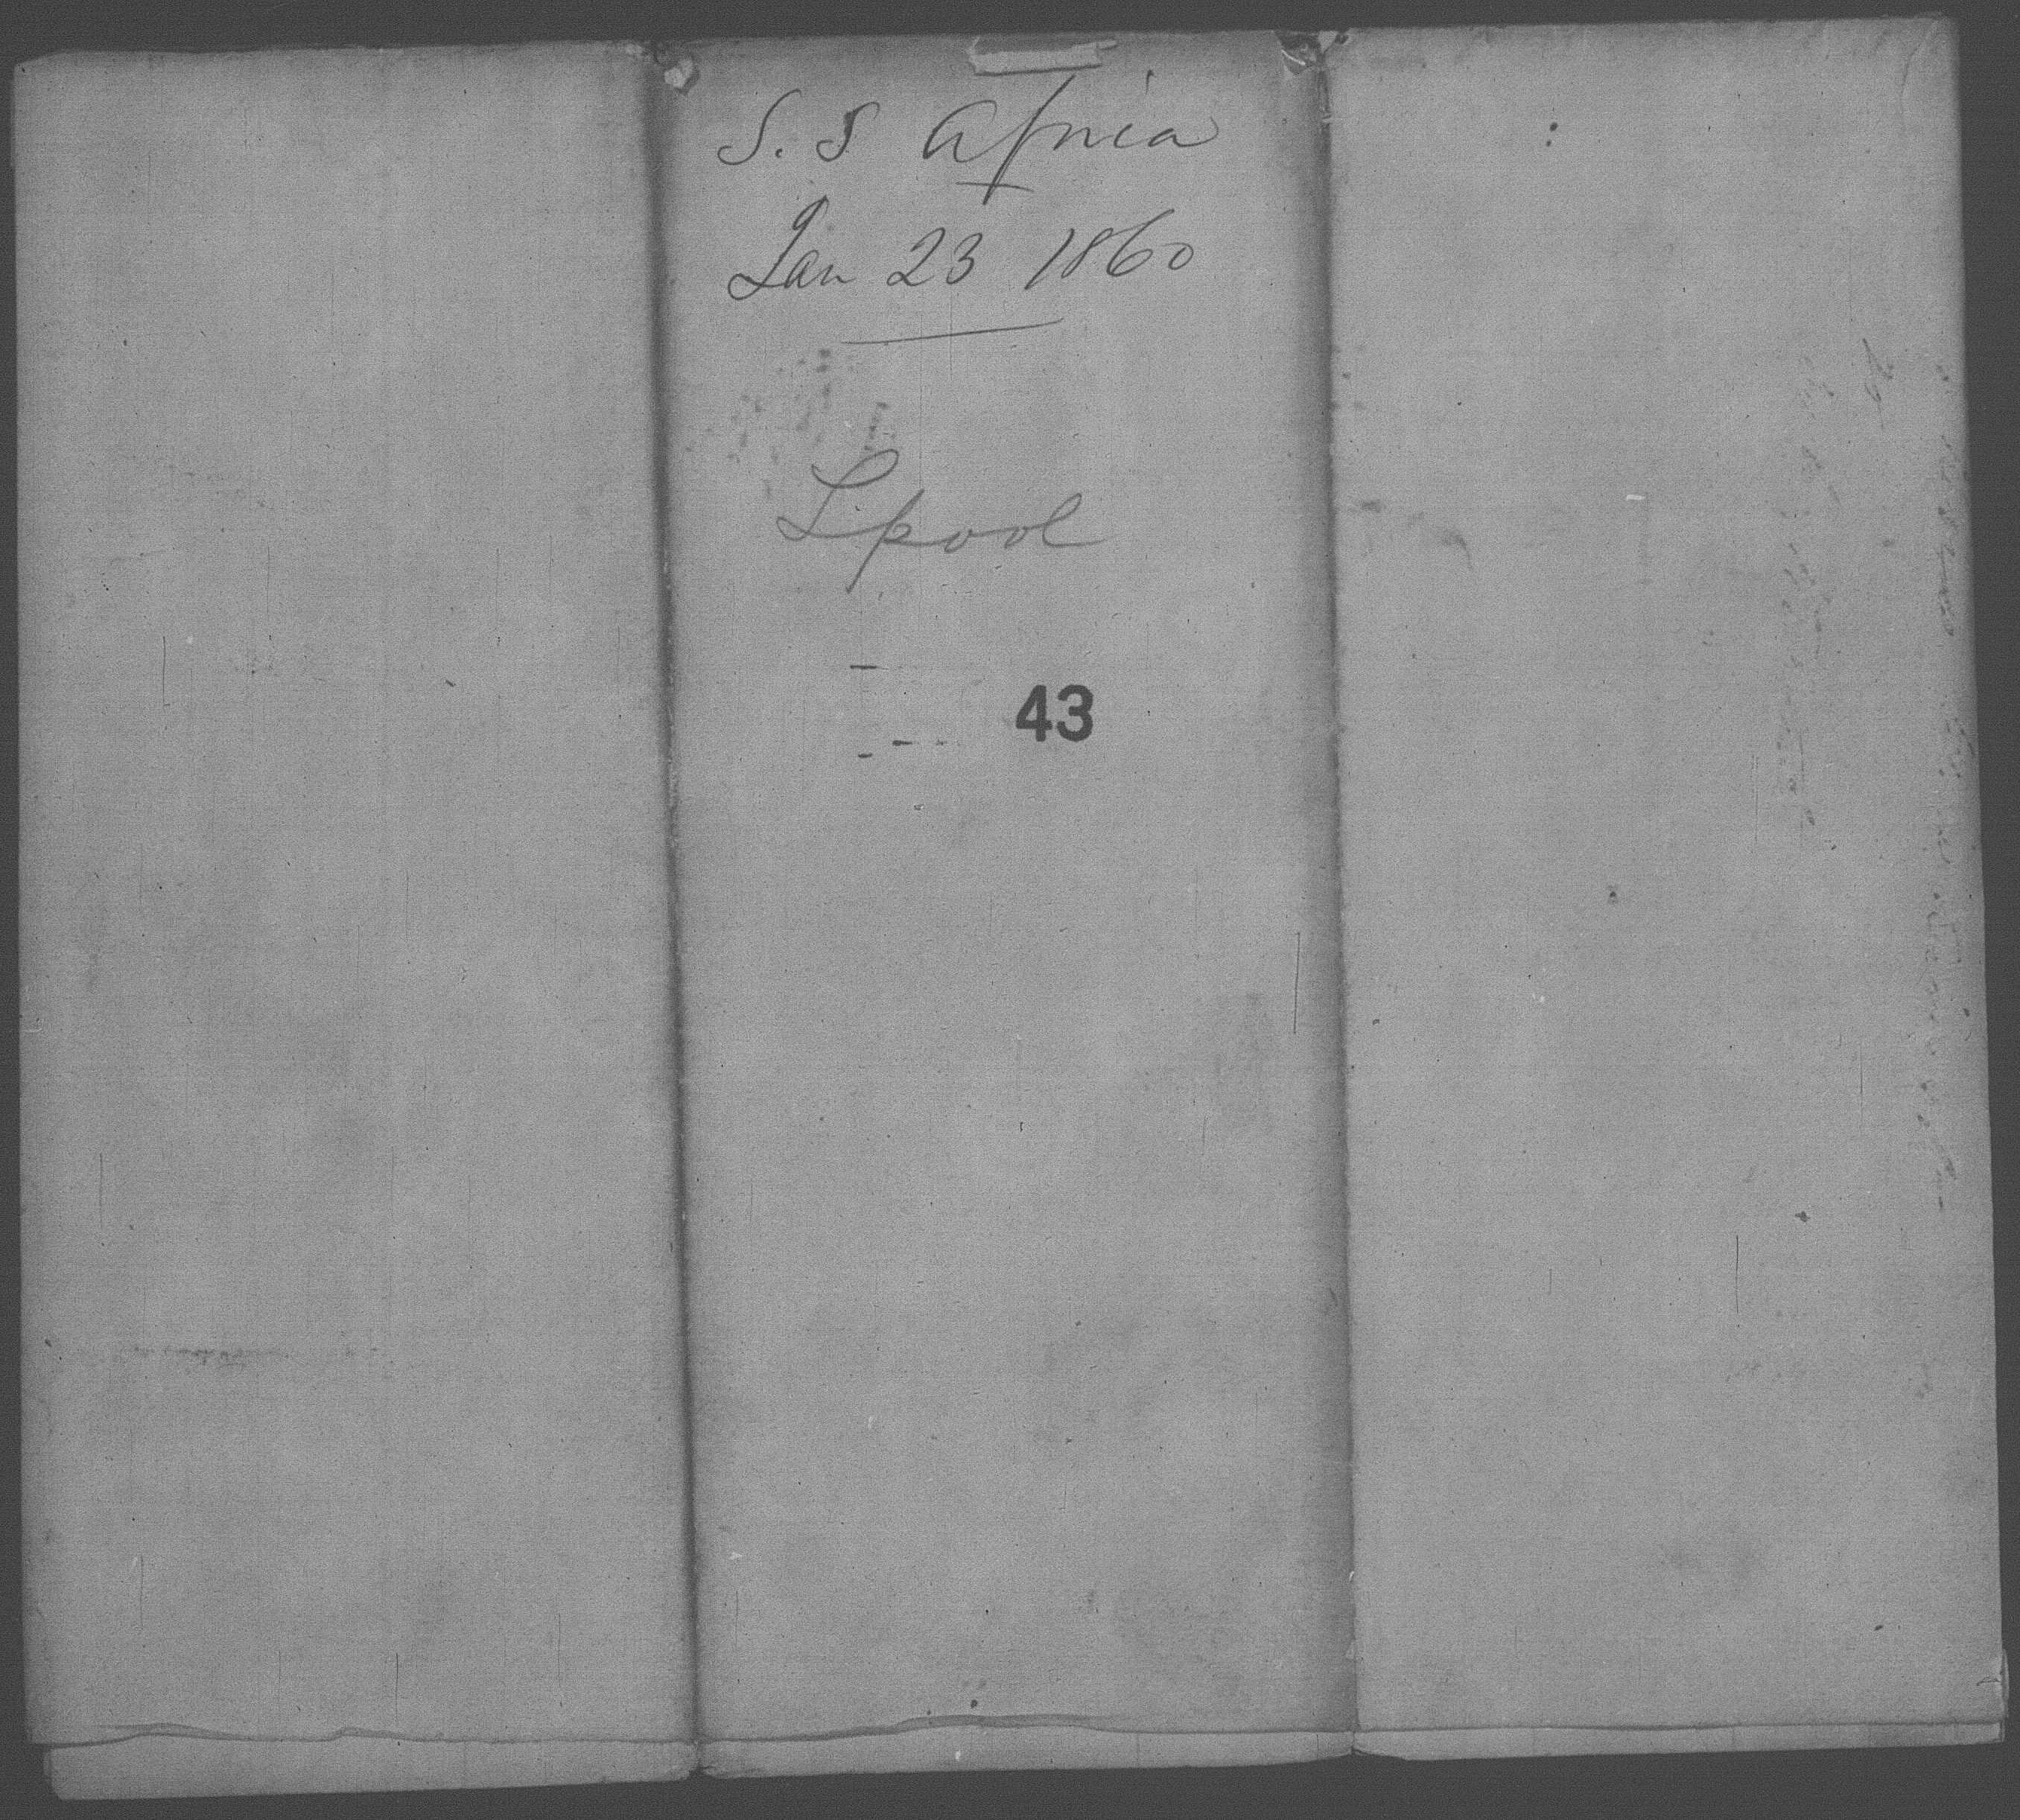 S. S Africa
Jan 23 1860
Lpool
43